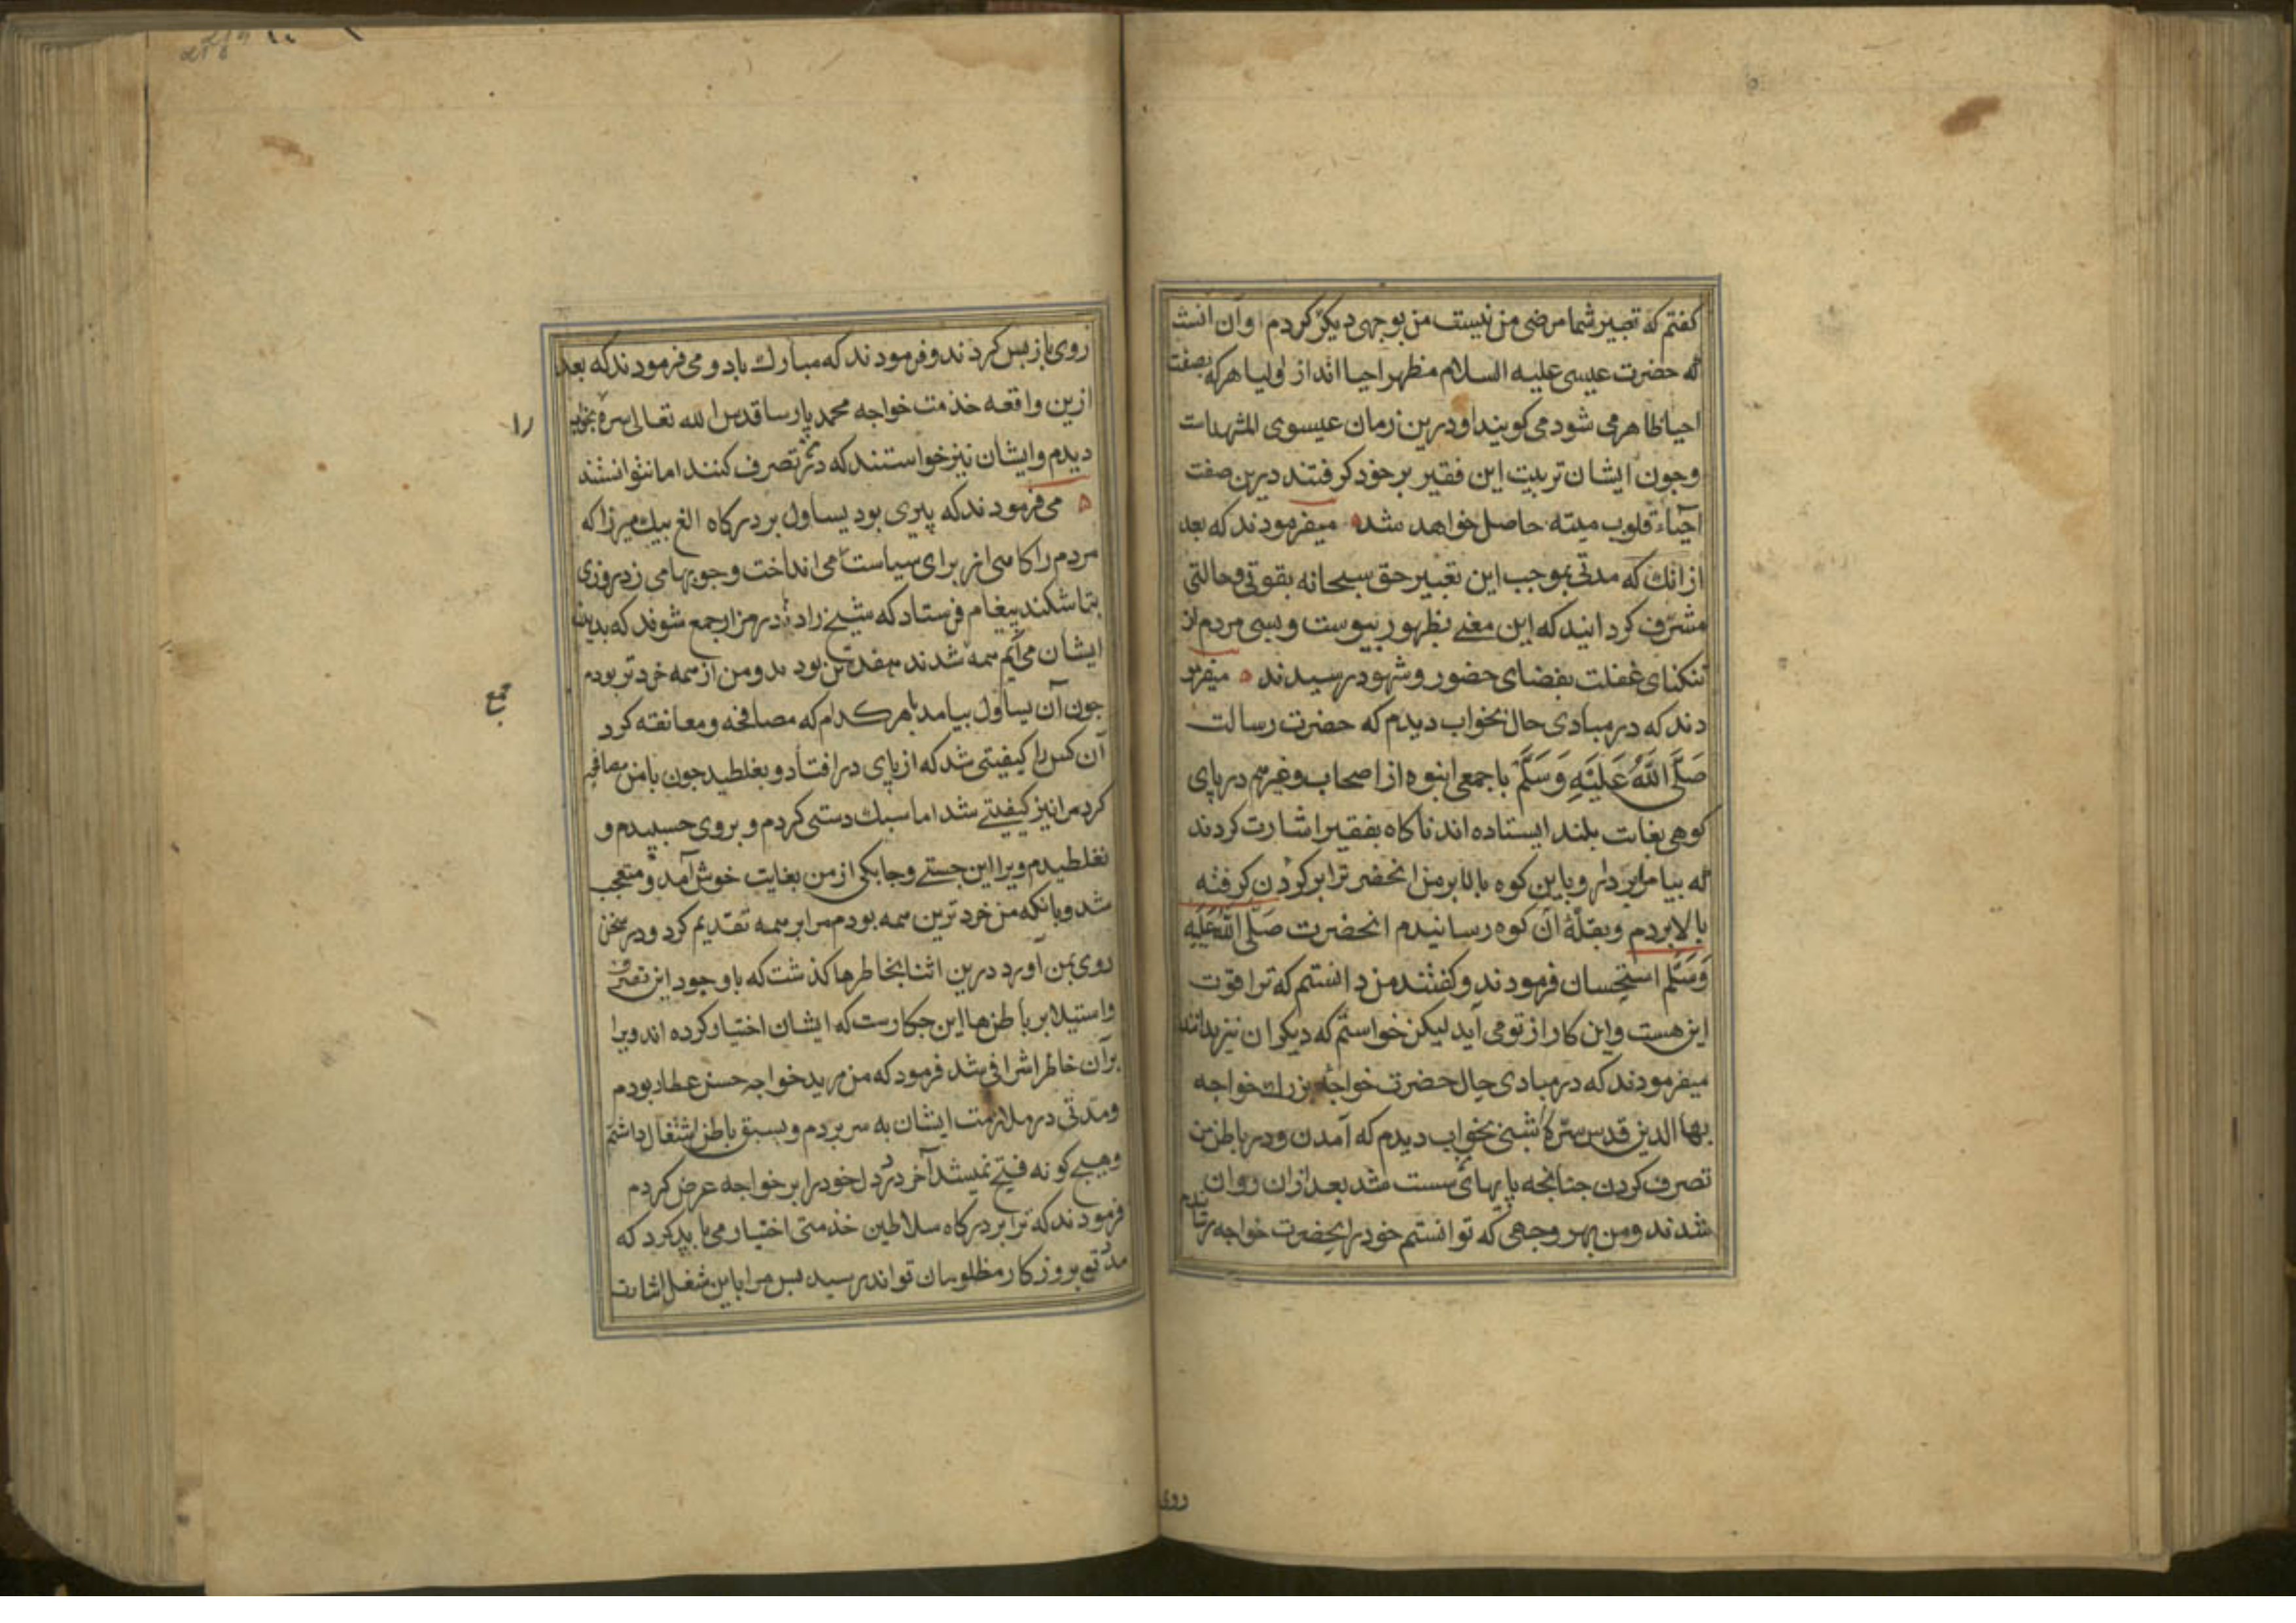 كفتم كه تعبير شما مرضی من نيست من بوجهی ديكر كردم و آن انست
كه حضرت عيسی عليه السلام مظهر احيا اند از اوليا هركه بصفت
احيا ظاهر می شود می كويند او درين زمان عيسوی المشهد است
وجون ايشان تربيت اين فقير بر خود كرفتند درين صفت
احياء قلوب ميته حاصل خواهد شد ميفرمودند كه بعد
از انك كه مدتی بموجب اين تعبير حق سبحانه بقوتی وحالتی
مشرف كردانيد كه اين معنی بظهور پيوست وبسی مردم از
تنكنای غفلت بفضای حضور وشهود رسيدند ميفرمو
دند كه در مبادی حال بخواب ديدم كه حضرت رسالت
صَلَّی اللَّهُ عَلَيْهِ وَسَلَّمْ با جمعی انبوه از اصحاب وغيرهم در پای
كوهی بغايت بلند ايستاده اند ناكاه بفقير اشارت كردند
كه بيا مرا بردار و باين كوه بالا بر من انحضرت را بر كردن كرفته
بالا بردم وبقلّهٔ آن كوه رسانيدم انحضرت صَلَّی اللَّهُ عَلَيْهِ
وَسَلَّم استحسان فرمودند وكفتند من دانستم كه ترا قوت
اين هست و اين كار از تو می آيد ليكن خواستم كه ديكران نيز بدانند
ميفرمودند كه در مبادی حال حضرت خواجهٔ بزرك خواجه
بها الدين قدس سرّه شبی بخواب ديدم كه آمدن ودر باطن من
تصرف كردن جنانجه پايهای سست شد بعد ازان روان
شدند ومن بهر وجهی كه توانستم خود را بحضرت خواجه رسانيدم
روی
روی باز پس كردند وفرمودند كه مبارك باد و می فرمودند كه بعد
ازين واقعه خذمت خواجه محمد پارسا قدس الله تعالی سره بخواب
را
ديدم وايشان نيز خواستند كه در تصرف كنند اما نتوانستند
می فرمودند كه پيری بود يساول بر دركاه الغ بيك ميرزا كه
مردم را كاهی از برای سياست می انداخت وجوبها می زد روزی
بتاشكند پيغام فرستاد كه شيخ زادها در مزار جمع شوند كه بديدن
ايشان می آيم همه شدند هفده تن بودند ومن از همه خردتر بودم
جمع
جون آن يساول بيامد با هر كدام كه مصافحه ومعانقه كرد
آن كس را كيفيتی شد كه از پای در افتاد و بغلطيد جون با من مصافحه
كرد مرا نيز كيفيتی شد اما سبك دستی كردم و بروی جسبيدم و
نغلطيدم ويرا اين جستی وجابكی از من بغايت خوش آمد و متعجب
شد وبانكه من خردترين همه بودم مرا بر همه تقديم كرد ودر سخن
روی بمن آورد درين اثنا بخاطرها كذشت كه با وجود اين تصرف
واستيلا بر باطن ها اين جكارست كه ايشان اختيار كرده اند ويرا
برآن خاطر اشرافی شد فرمود كه من مريد خواجه حسن عطار بودم
ومدتی در ملازمت ايشان به سر بردم وبسبق باطن اشتغال داشتم
وهيج كونه فتح نميشد آخر درد دل خود را بر خواجه عرض كردم
فرمودند كه ترا بر دركاه سلاطين خذمتی اختيار می بايد كرد كه
مددی بروزكار مظلومان تواند رسيد پس مرا باين شغل اشارت